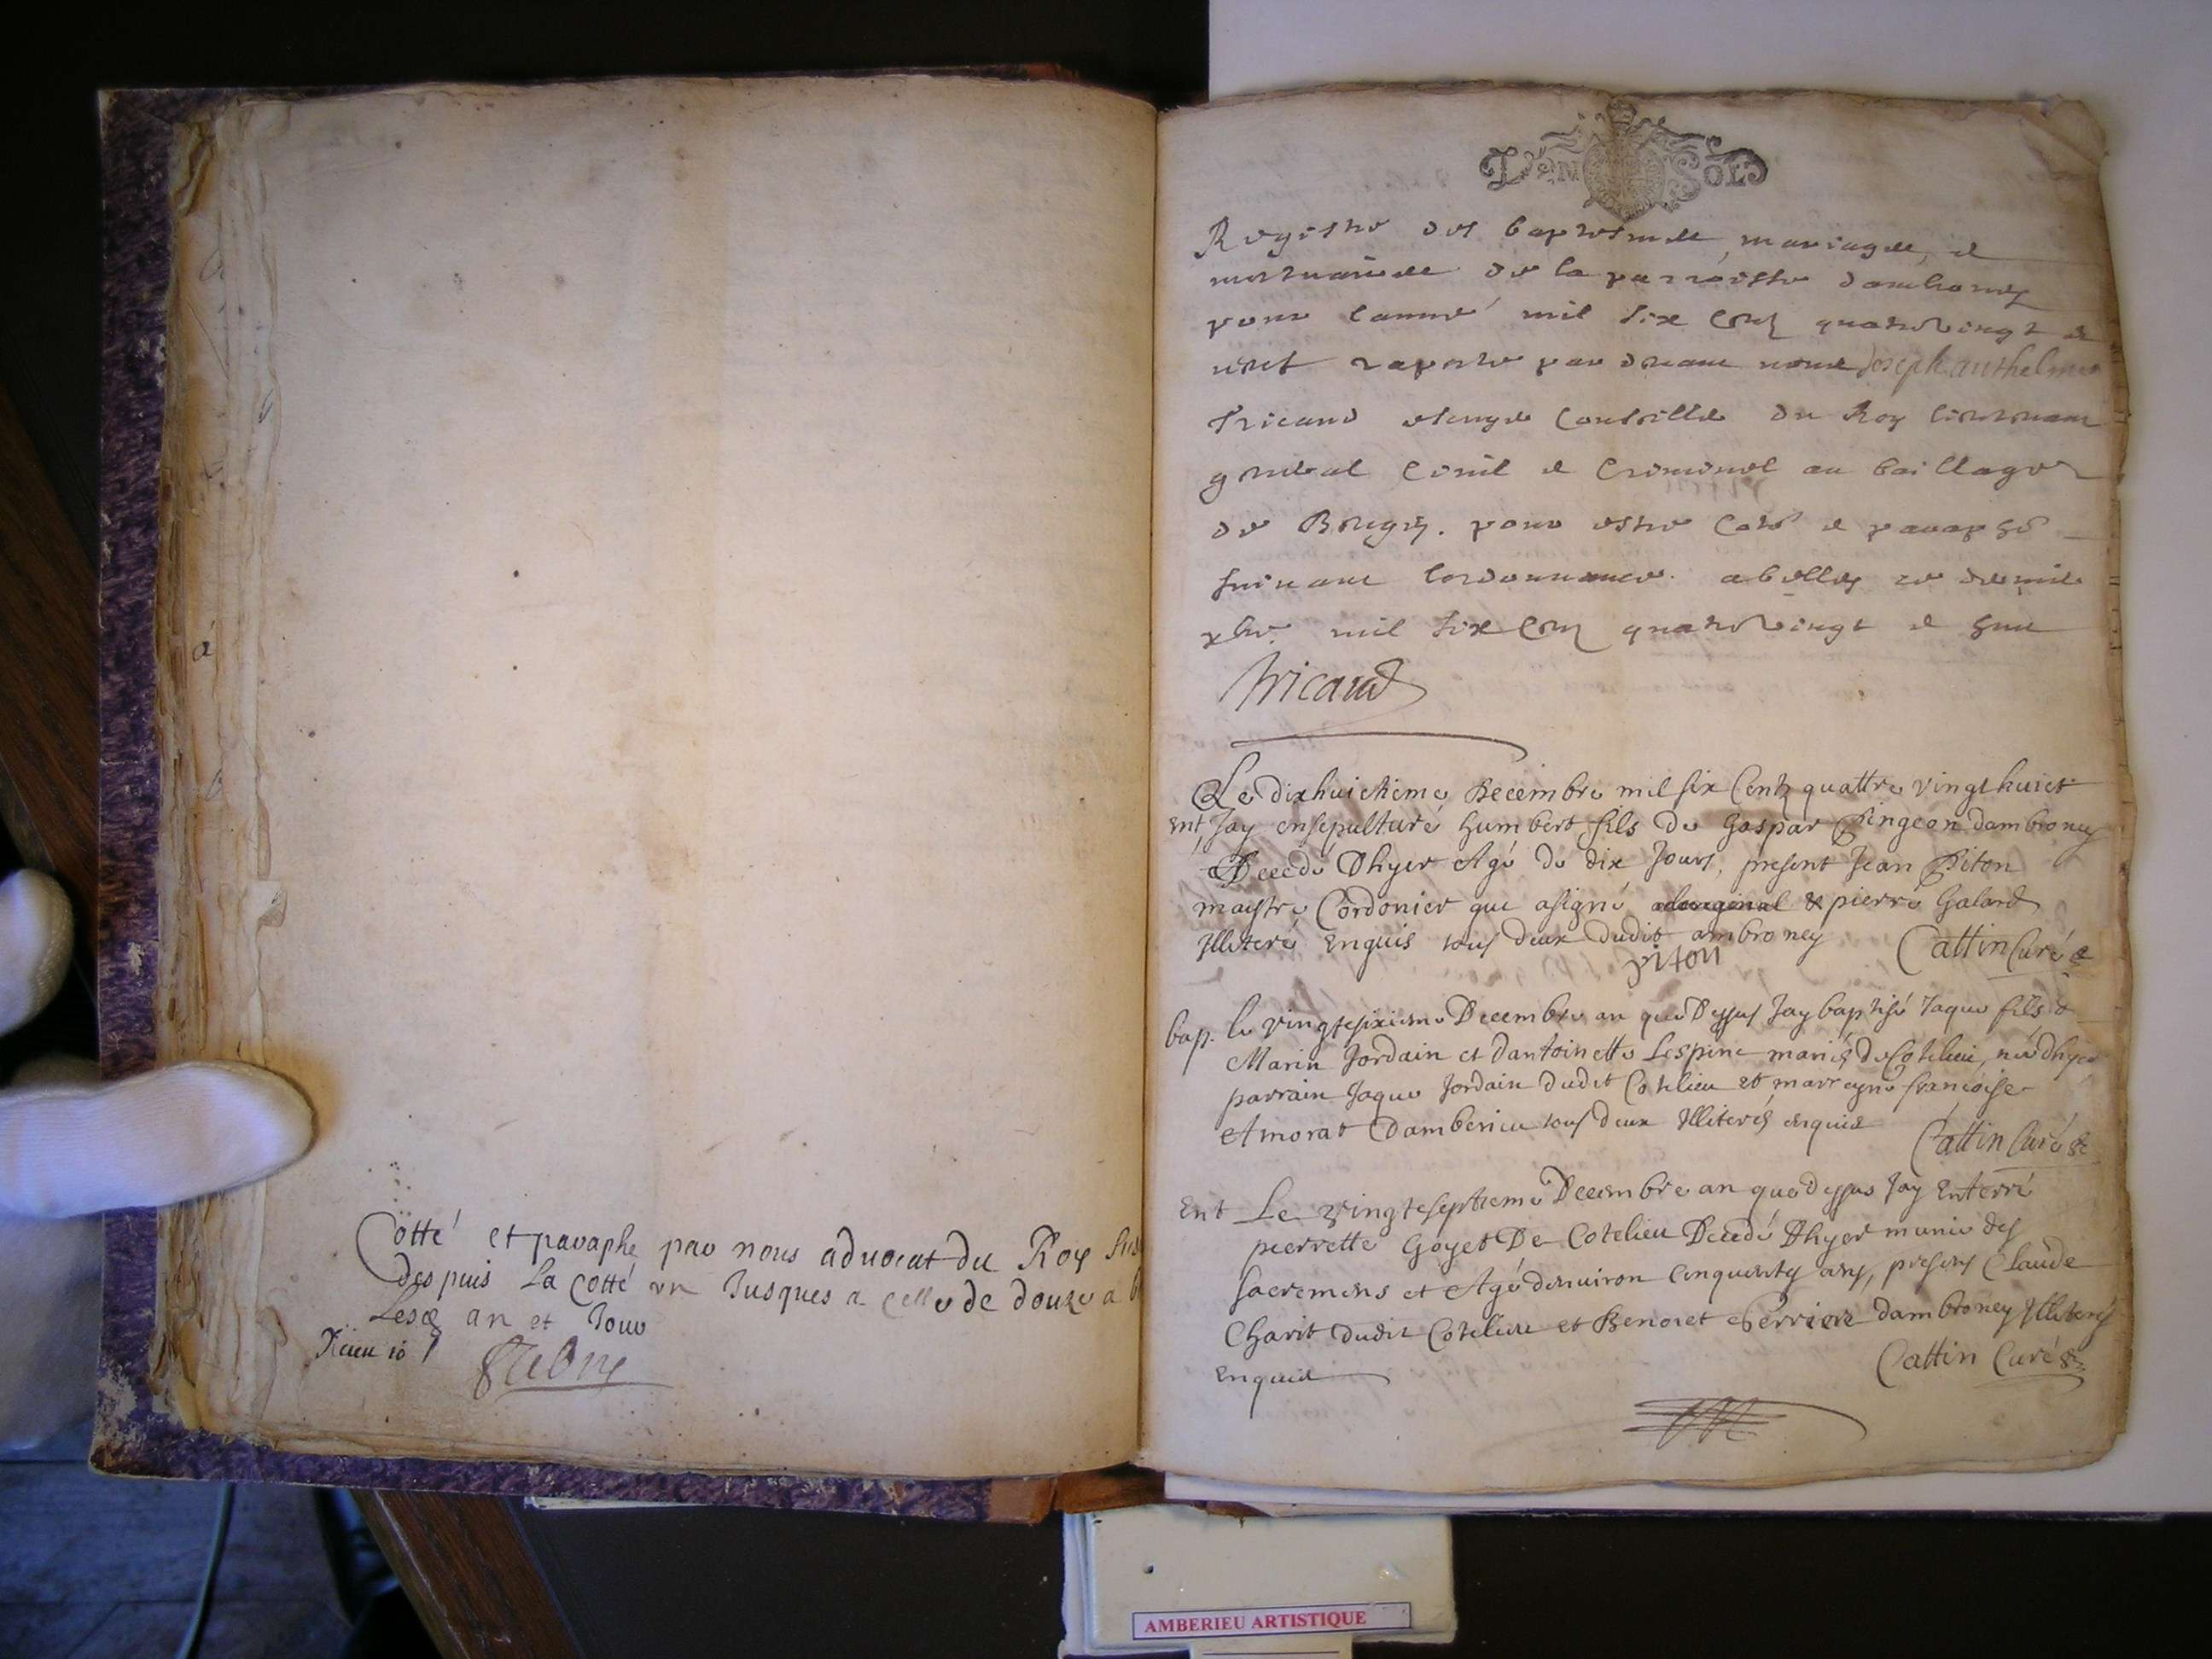 Cotté et paraphé par nous advocat du Roy
despuis La cotté un Jusques a celle de douze a
Lesd an et Jour
UN SOL
Registre des baptesmes, mariages, et
mortuaires de la parroisse dambronay
pour l'année mil six cens quatrevingt et
neuf raporté par devant nous Joseph Anthelme
Tricaud escuyer Conseiller du Roy lieutenant
general Civil et Criminel au bailliage
de Bugey. pour estre coté et paraphé
suivant lordonnance. a belley ce
xbre mil six cens quatrevingt et huit
Tricaud
Le dixhuictieme Decembre mil six Centz quattre vingt huict
Ent Jay ensepulturé humbert fils de Gaspar Pingeon dambroney
Decedé Dhyer Agé de dix Jours, present Jean Piton
maystre Cordonier qui asigné & pierre Galard
Illiteré Enquis tous deux dudit ambroney Cattin Curé
piton
bap. le vingtesixieme Decembre an que Dessus Jay baptisé Jaque fils d
Marin Jordain et dantoinette Lespine mariés de Cotelieu, né dhyer
parrain Jaque Jordain dudit Cotelieu et marreyne francoise
Amorat Damberieu tous deux Illiterés enquis
Cattin Curé &
Ent Le vingteseptieme Decembre an que dessus Jay Enterré
pierrette Goyet De Cotelieu Decedé Dhyer munie des
sacremens et Agé denviron Cinquante ans, presens Claude
Charit dudit Cotelieu et Benoiet Perrier dambroney Illiterés
Enquis
Cattin Curé &
AMBERIEU ARTISTIQUE